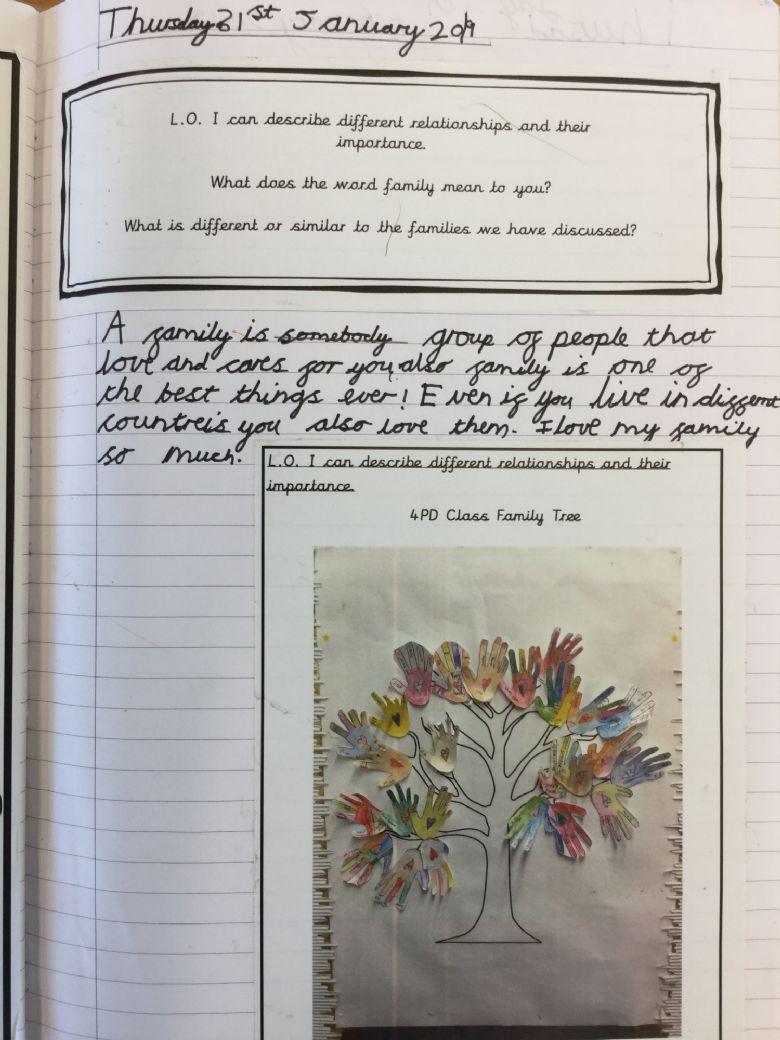 Thursday 31st January 2019
L.O. I can describe different relationships and their
importance.
What does the word family mean to you?
What is different or similar to the families we have discussed?
A family is somebody group of people that
love and cares for you also family is one of
the best things ever! Even if you live in different
countreis you also love them. I love my family
so much.
L.O. I can describe different relationships and their
importance.
4PD Class Family Tree